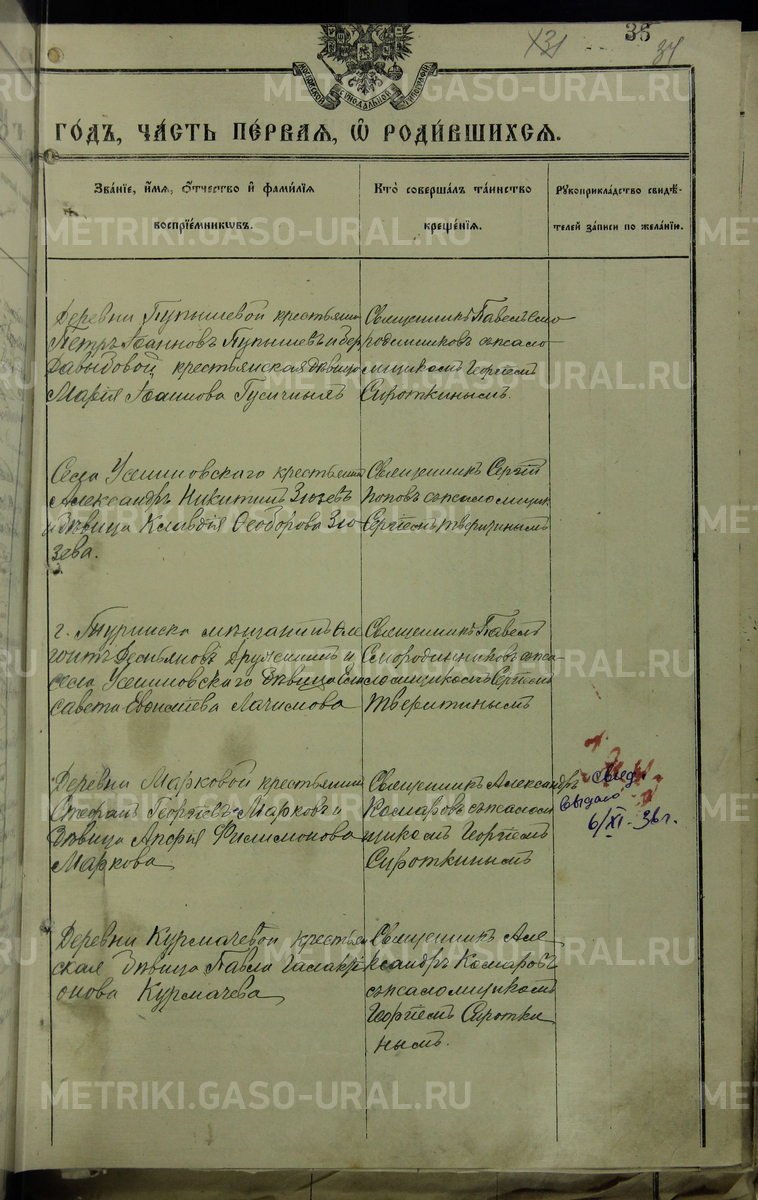 131
35
34
МОСКОВСКОЙ СѴНОДАЛЬНОЙ ТИПОГРАФІИ
ГО́ДЪ, ЧА́СТЬ ПЕ́РВАЯ, Ѡ҆ РОДИ́ВШИХСЯ.
Зва́нїе, и҆́мя, ѻ҆́тчество и҆ фами́лїя
воспрїе́мникѡвъ.
Кто̀ соверша́лъ та́инство
креще́нїя.
Рꙋкоприкла́дство свидѣ́-
телей за́писи по жела́нїи.
Деревни Пупышевой крестьянин
Петръ Іоанновъ Пупышевъ и дер
Давыдовой крестьянская дѣвица
Марія Іоаннова Гусичныя
Священникъ Павелъ Смо
родинниковъ съ псало
мщикомъ Георгіемъ
Сироткинымъ.
Села Усениновскаго крестьянин
Александръ Никитинъ Зюзевъ
и дѣвица Клавдія Ѳеодорова Зю
зева.
Священникъ Сергій
Поповъ съ псаломщик
Сергіемъ Тверитинымъ
г. Туринска мѣщанинъ
Дружининъ и
села Усениновскаго дѣвица Ели
савета Лачимова
Священникъ Павелъ
Смородинниковъ съ пса
ломщикомъ Сергіемъ
Тверитинымъ
Деревни Марковой крестьянин
Стефанъ Георгіевъ Марковъ и
дѣвица Филимонова
Маркова
Священникъ Александръ
Комаровъ съ псалом
щикомъ Георгіемъ
Сироткинымъ
свед.
выдано
6/XI-36г.
Деревни Курмачевой крестьян
ская дѣвица Павла Галакті
онова Курмачева
Священникъ Але
ксандръ Комаровъ
съ псаломщикомъ
Георгіемъ Сиротки
нымъ.
METRIKI.GASO-URAL.RU